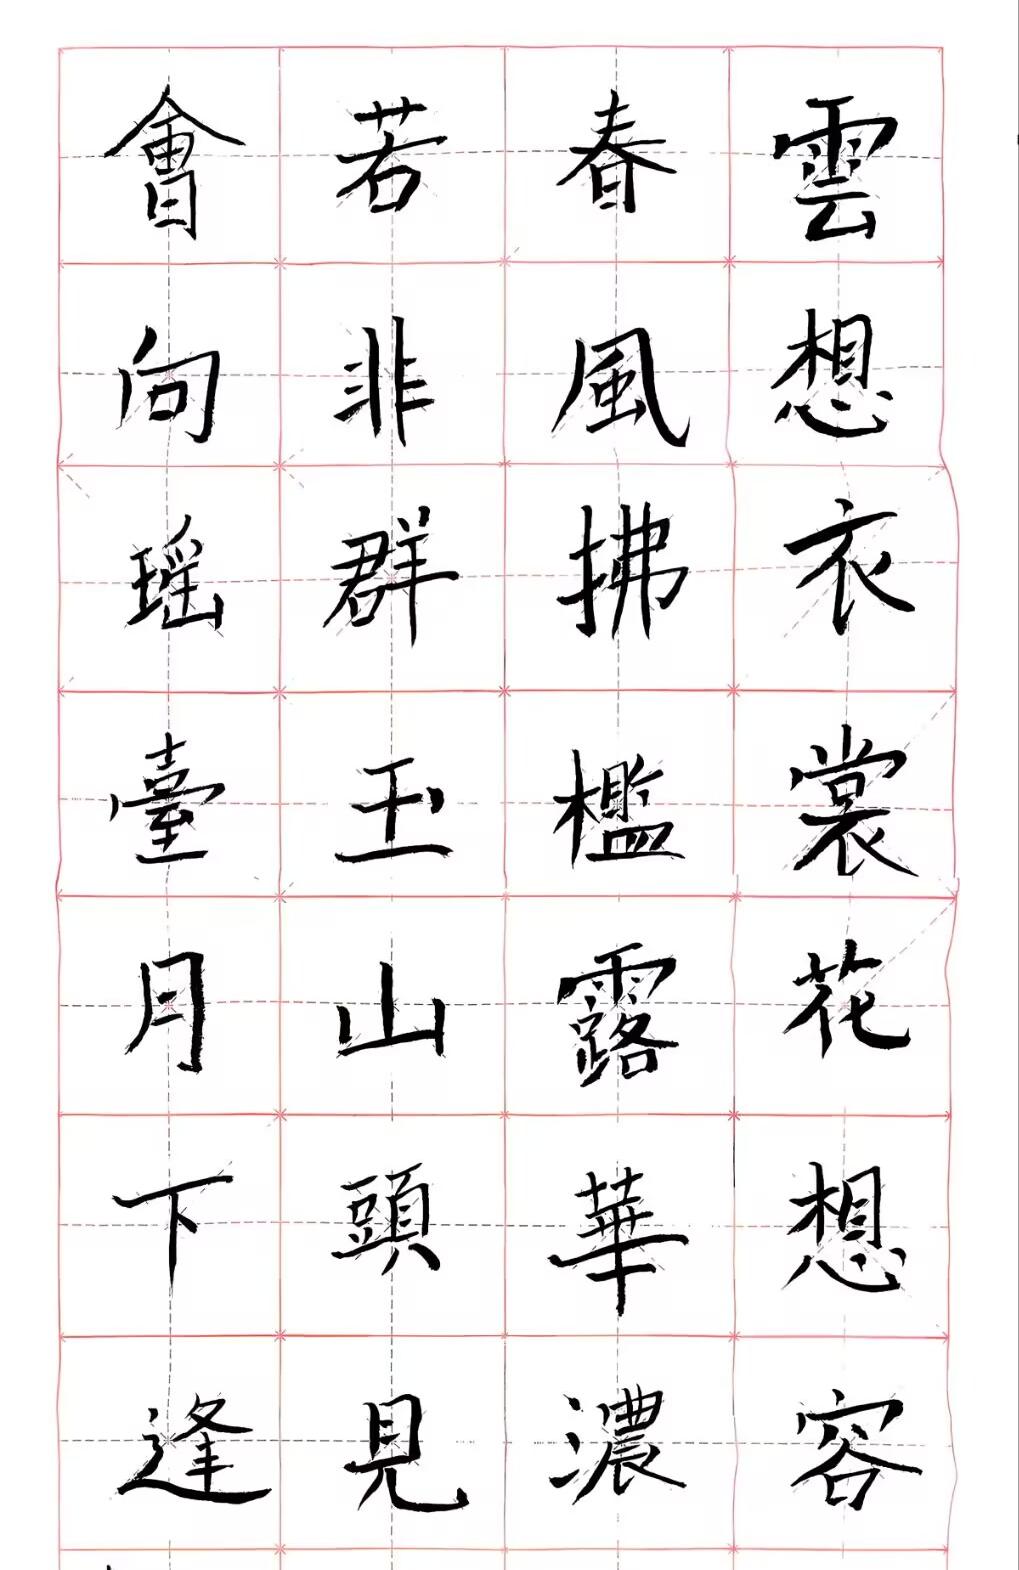 雲想衣裳花想容
春風拂檻露華濃
若非群玉山頭見
會向瑶臺月下逢